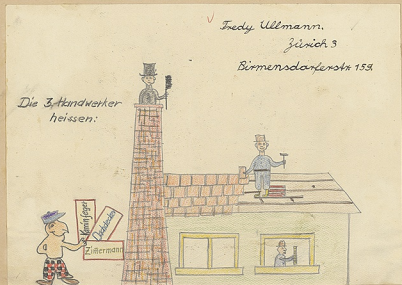 Fredy Ullmann.
Zürich 3
Birmensdorferstr. 159.
Die 3 Handwerker
heissen:
Kaminfeger
Dachdecker
Zimmermann